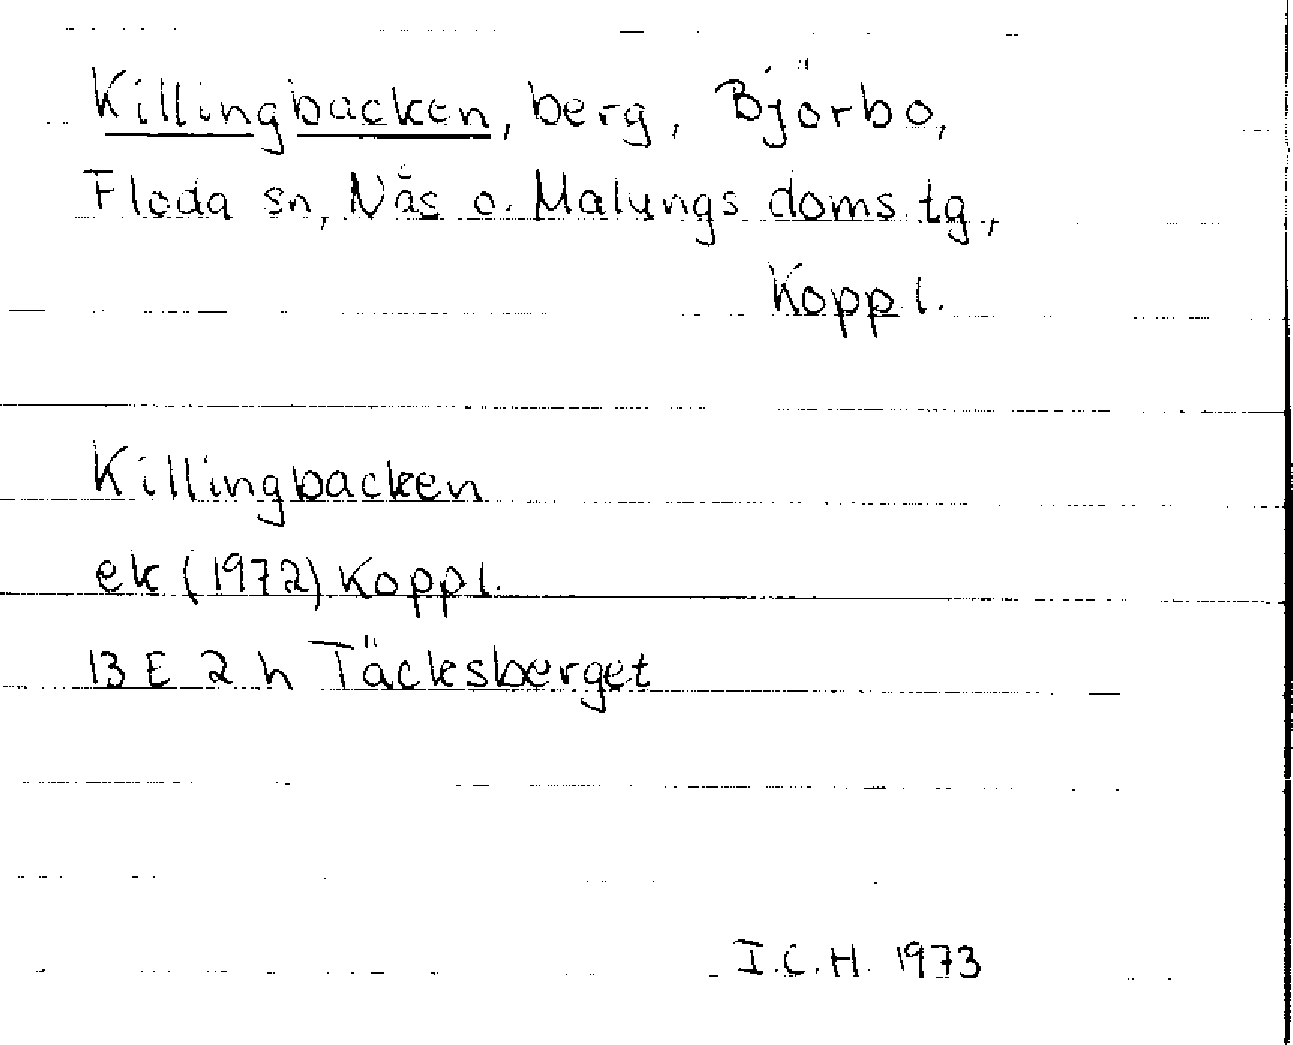 Killingbacken, berg, Björbo,
Floda sn, Nås o. Malungs doms.tg,
Koppl.
Killingbacken
ek (1972) Koppl.
13 E 2 h Täcksberget
I.C.H. 1973